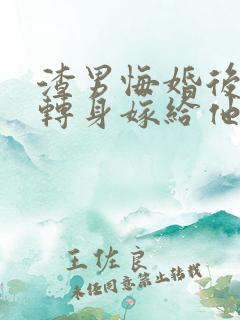 渣男悔婚後
轉身嫁給他
王佐良
未经同意禁止转载